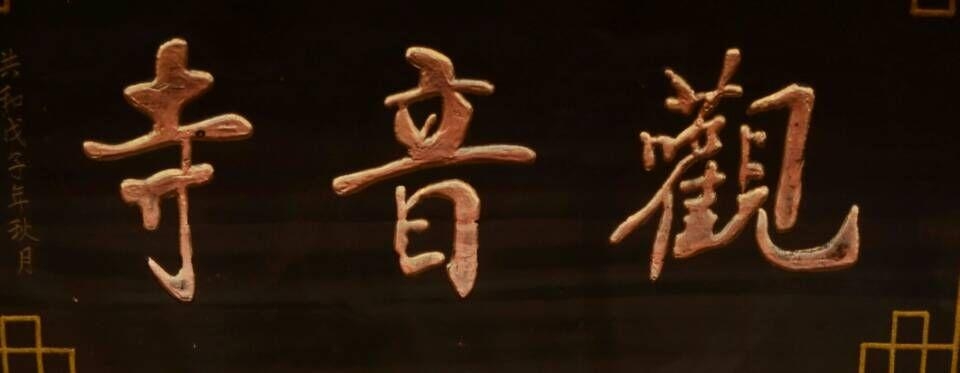 觀音寺
共和戊子年秋月